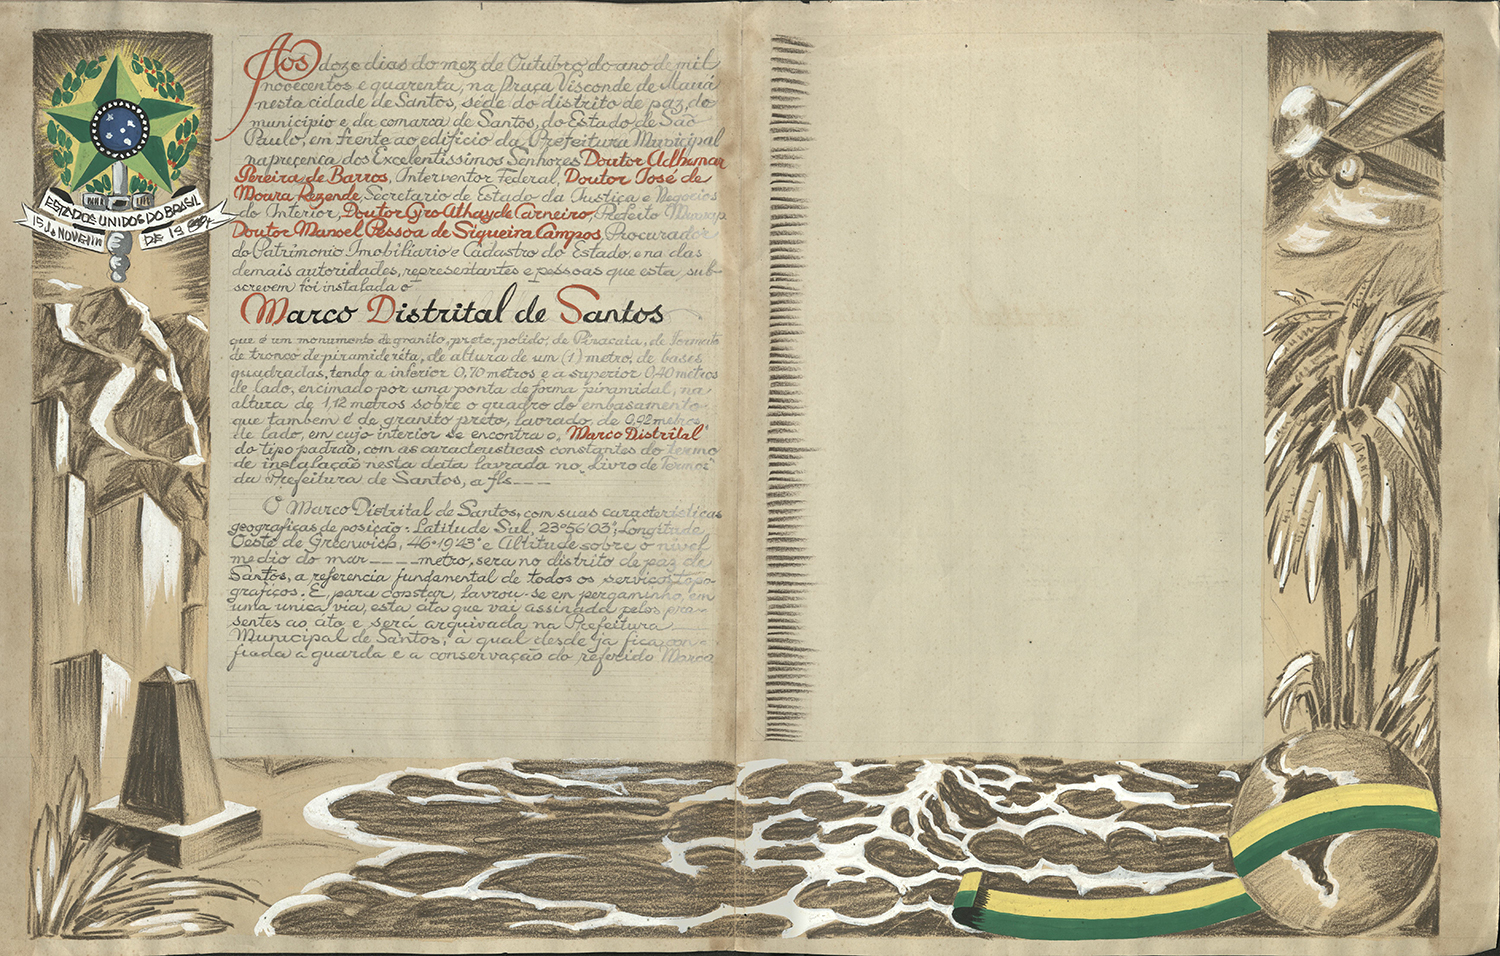 ESTADOS UNIDOS DO BRASIL
15 de NOVEMbro DE 1889
Aos doze dias do mez de Outubro do ano de mil
novecentos e quarenta, na Praça Visconde de Mauá
nesta cidade de Santos, séde do distrito de paz, do
município e da comarca de Santos, do Estado de São
Paulo, em frente ao edificio da Prefeitura Municipal
na precença dos Excelentissimos Senhores Doutor Adhemar
Pereira de Barros, Interventor Federal, Doutor José de
Moura Rezende, Secretario de Estado da Justiça e Negocios
do Interior, Doutor Cyro Athayde Carneiro, Prefeito
Doutor Manoel Pessoa de Siqueira Campos, Procurador
do Patrimonio Imobiliario e Cadastro do Estado, e na das
demais autoridades, representantes e pessoas que esta sub-
screvem foi instalada o
Marco Distrital de Santos
que é um monumento de granito, preto, polido, de Piracaia, de formato
de tronco de piramide réta, de altura de um (1) metro, de bases
quadradas, tendo a inferior 0,70 metros e a superior 0,40 metros
de lado, encimado por uma ponta de forma piramidal, na
altura de 1,12 metros sobre o quadro do embasamento
que tambem é de granito preto, lavrado, de 0,92 metros
de lado, em cujo interior se encontra o "Marco Distrital"
do tipo padrão, com as caracteristicas constantes do termo
de instalação nesta data lavrada no "Livro de Termos"
da Prefeitura de Santos, a fls----
O Marco Distrital de Santos, com suas características
geograficas de posição: Latitude Sul, 23°56'03", Longitude
Oeste de Greenwich, 46°19'43" e Altitude sobre o nivel
medio do mar ----metro, sera no distrito de paz de
Santos, a referencia fundamental de todos os serviços topo-
graficos. E, para constar, lavrou-se em pergaminho, em
uma unica via, esta ata que vai assinada pelos pre-
sentes ao ato e será arquivada na Prefeitura
Municipal de Santos, à qual desde ja fica con-
fiada a guarda e a conservação do referido Marco